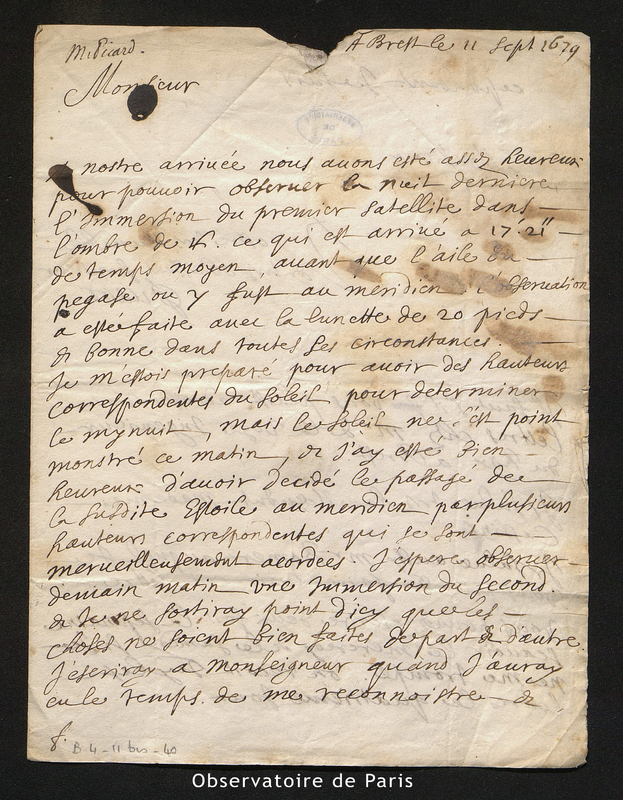 Mr Picard.
A Brest le 11 Sept 1679
Monsieur
nostre arrivée nous avons esté assez heureux
pour pouvoir observer la nuit derniere
l'Immersion du premier satellite dans
l'ombre de ♃. ce qui est arrivé a 17'. 21"
de temps moyen, avant que l'aile du
pegase ou γ fust au meridien l'observation
a esté faite avec la lunette de 20 pieds
& bonne dans toutes ses circonstances.
Je m'estois preparé pour avoir des hauteurs
correspondentes du soleil pour determiner
le mynuit, mais le soleil ne s'est point
monstré ce matin, & j'ay esté bien
heureux d'avoir decidé le passage de
la susdite Estoile au meridien par plusieurs
hauteurs correspondentes qui se sont
merveilleusement acordées. J'espere observer
demain matin une Immersion du second.
& Je ne sortiray point d'icy que les
choses ne soient bien faites de part & d'autre.
J'escriray a Monseigneur quand J'auray
eu le temps de me reconnoistre &
B 4 - 11 bis - 40
Observatoire de Paris